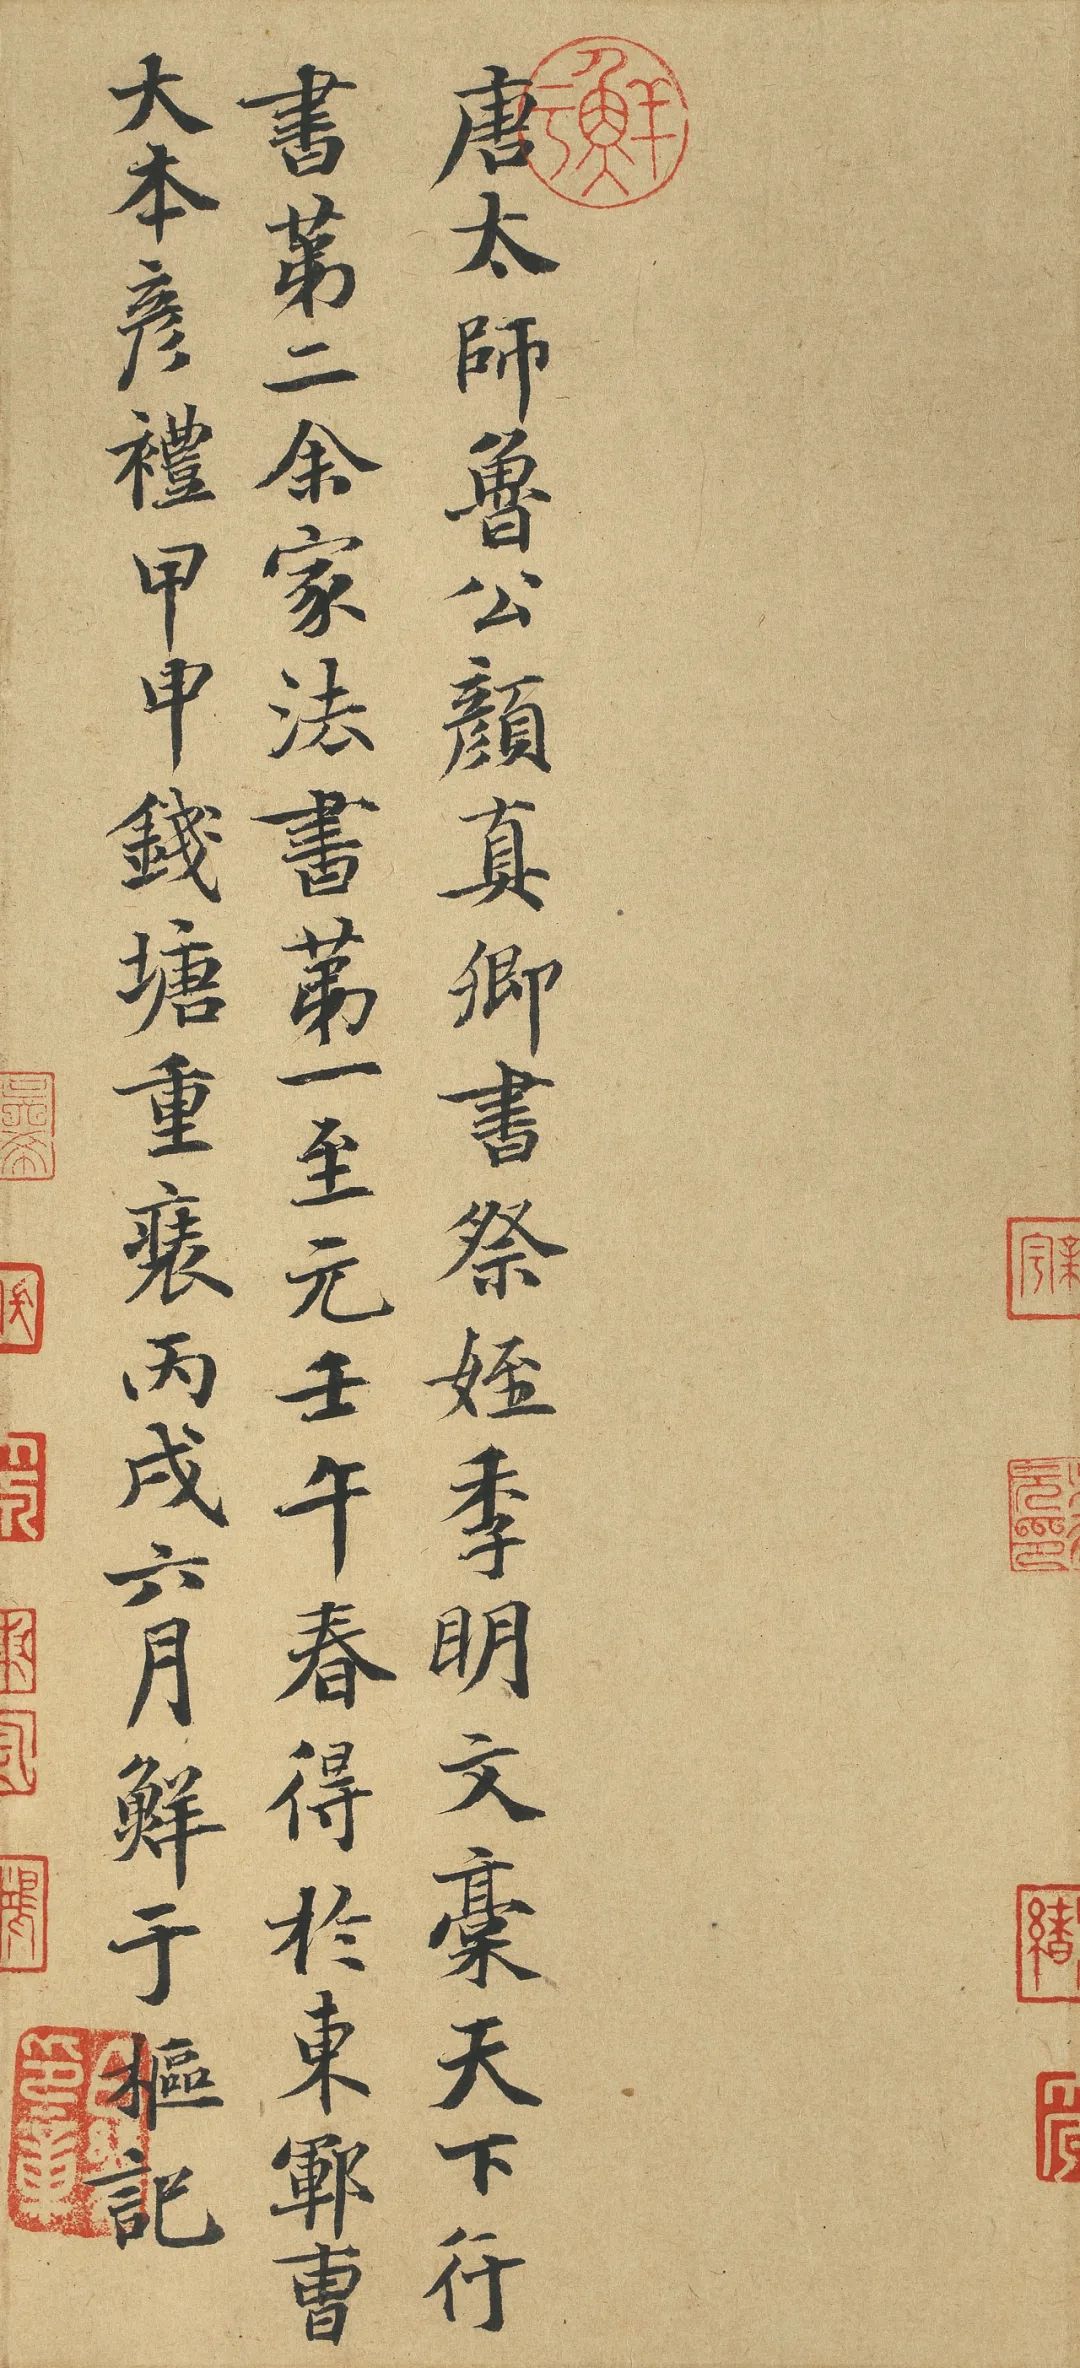 唐太師魯公顏真卿書祭姪季明文稾天下行
書苐二余家法書苐一至元壬午春得於東鄆曺
大本彥禮甲申錢塘重裝丙戌六月鮮于樞記